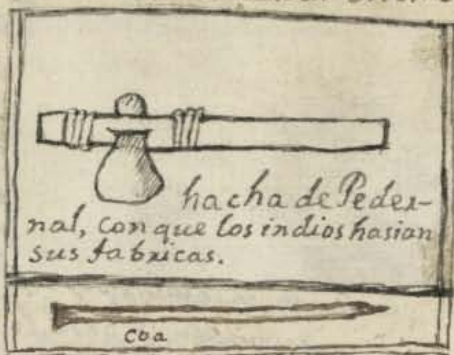 hacha de Peder-
nal, con que los indios hasian
sus fabricas.
coa